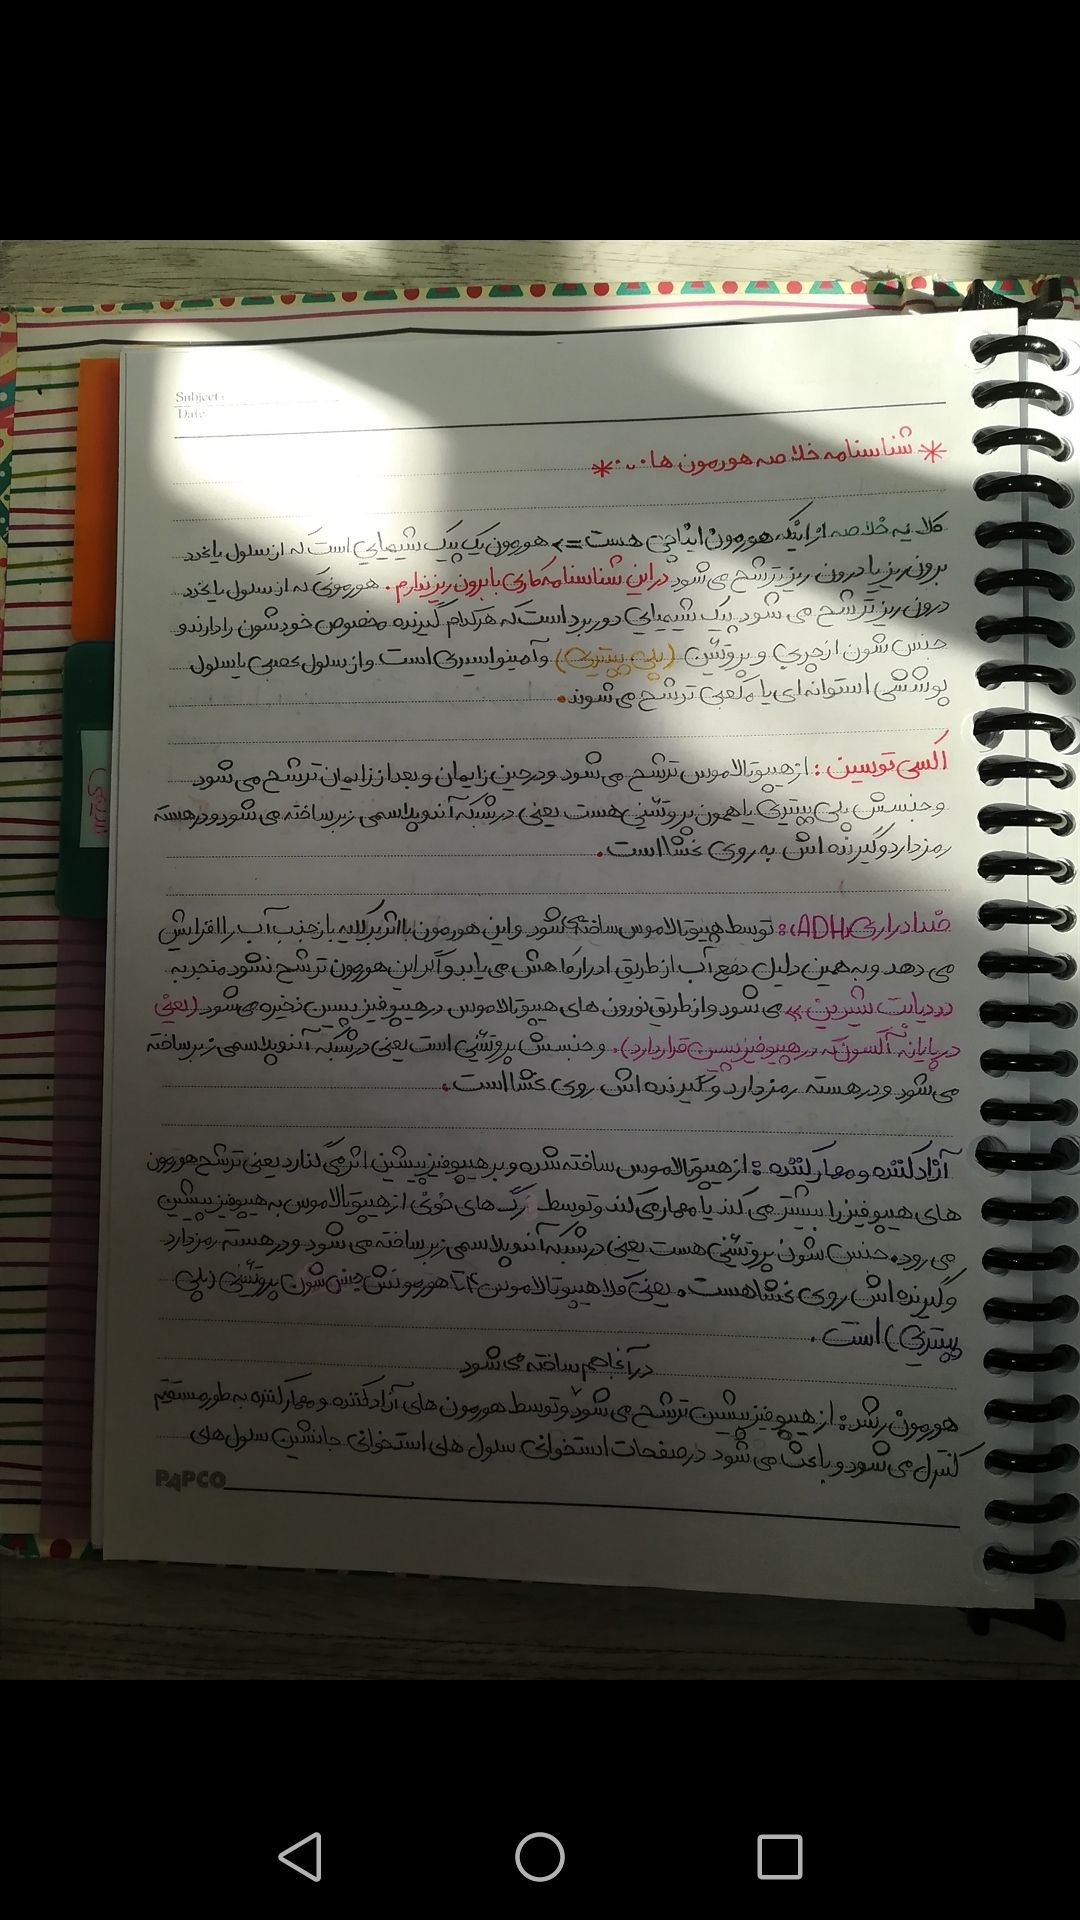 Subject:
Date
* شناسنامه خلاصه هورمون ها ... *
کلا یه خلاصه از اینکه هورمون اینا چی هست => هورمون یک پیک شیمیایی است که از سلول یا غدد
برون ریز یا درون ریز ترشح می شود در این شناسنامه کاری با برون ریز نداریم. هورمونی که از سلول یا غدد
درون ریز ترشح می شود پیک شیمیایی دوربرد است که هرکدام گیرنده مخصوص خودشون را دارند و
جنس شون از چربی و پروتئین (پلی پپتیدی) و آمینواسیدی است و از سلول عصبی یا سلول
پوششی استوانه ای یا مکعبی ترشح می شوند.
اکسی توسین: از هیپوتالاموس ترشح می شود و در حین زایمان و بعد از زایمان ترشح می شود
و جنسش پلی پپتیدی یا همون پروتئینی هست یعنی در شبکه آندوپلاسمی زبر ساخته می شود و در هسته
رمز دارد و گیرنده اش به روی غشا است.
ضد ادراری (ADH): توسط هیپوتالاموس ساخته می شود و این هورمون با اثر بر کلیه بازجذب آب را افزایش
می دهد و به همین دلیل دفع آب از طریق ادرار کاهش می یابد و اگر این هورمون ترشح نشود منجر به
دیابت شیرین می شود و از طریق نورون های هیپوتالاموس در هیپوفیز پسین ذخیره می شود (یعنی
در پایانه آکسون که در هیپوفیز پسین قرار دارد). و جنسش پروتئینی است یعنی در شبکه آندوپلاسمی زبر ساخته
می شود و در هسته رمز دارد و گیرنده اش روی غشا است.
آزادکننده و مهارکننده: از هیپوتالاموس ساخته شده و بر هیپوفیز پیشین اثر می گذارد یعنی ترشح هورمون
های هیپوفیز را بیشتر می کند یا مهار می کند و توسط رگ های خونی از هیپوتالاموس به هیپوفیز پیشین
می رود. جنس شون پروتئینی هست یعنی در شبکه آندوپلاسمی زبر ساخته می شود و در هسته رمز دارد
و گیرنده اش روی غشا هست. یعنی کلا هیپوتالاموس ۴ تا هورمونش جنس شون پروتئینی (پلی
پپتیدی) است.
در آنجا هم ساخته می شود
هورمون رشد: از هیپوفیز پیشین ترشح می شود و توسط هورمون های آزادکننده و مهارکننده به طور مستقیم
کنترل می شود و باعث می شود در صفحات استخوانی سلول های استخوانی جانشین سلول های
PAPCO